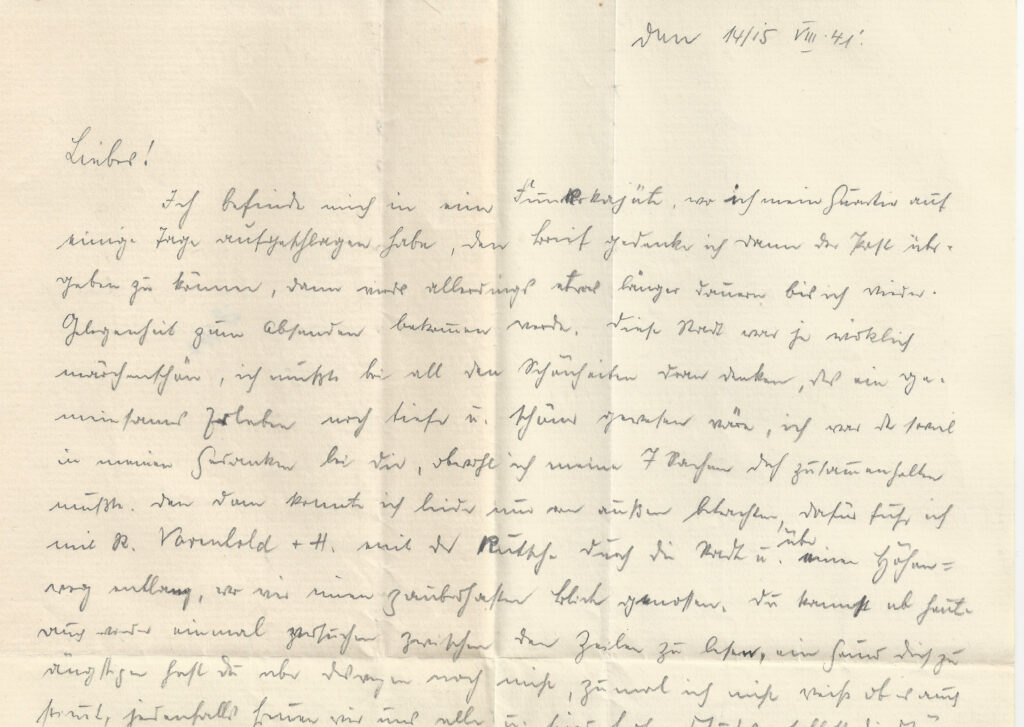 den 14/15 VIII. 41.
Liebes!
Ich befinde mich in eine Funkerkajüte, wo ich mein Quartier auf
einige Tage aufgeschlagen habe, den Brief gedenke ich dann der Post über-
geben zu können, dann wirds allerdings etwas länger dauern bis ich wieder
Gelegenheit zum Absenden bekommen werde. Diese Stadt war ja wirklich
märchenschön, ich mußte bei all den Schönheiten dran denken, das ein ge-
meinsames Erleben noch tiefer u. schöner gewesen wäre, ich war da soviel
in meinen Gedanken bei dir, obwohl ich meine 7 Sachen doch zusammenhalten
mußte. Den Dom konnte ich leider nur von außen betrachten, dafür fuhr ich
mit K. + H. mit der Kutsche durch die Stadt u. über einen Höhen=
weg entlang, wo wir einen zauberhaften Blick genossen. Du kannst ab heute
auch wieder einmal versuchen zwischen den Zeilen zu lesen, ein Grund dich zu
ängstigen hast du aber deswegen noch nicht, zumal ich nicht weiß ob es auch
stimmt, jedenfalls freuen wir uns alle